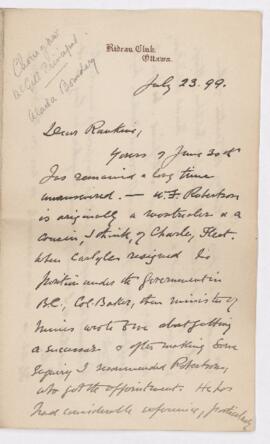 Rideau Club.
Ottawa.
McGill Principal
Alaska Boundary
July 23. 99.
Dear Rankine,
Yours of June 30th
has remained a long time
unanswered. — W. F. Robertson
is originally a Montrealer & a
cousin, I think, of Charley Fleet.
When Carlyle resigned his
position under the government in
B.C., Col. Baker, then minister of
Mines wrote to me about getting
a successor & after making some
inquiry I recommended Robertson,
who got the appointment. He has
had considerable experience, particularly